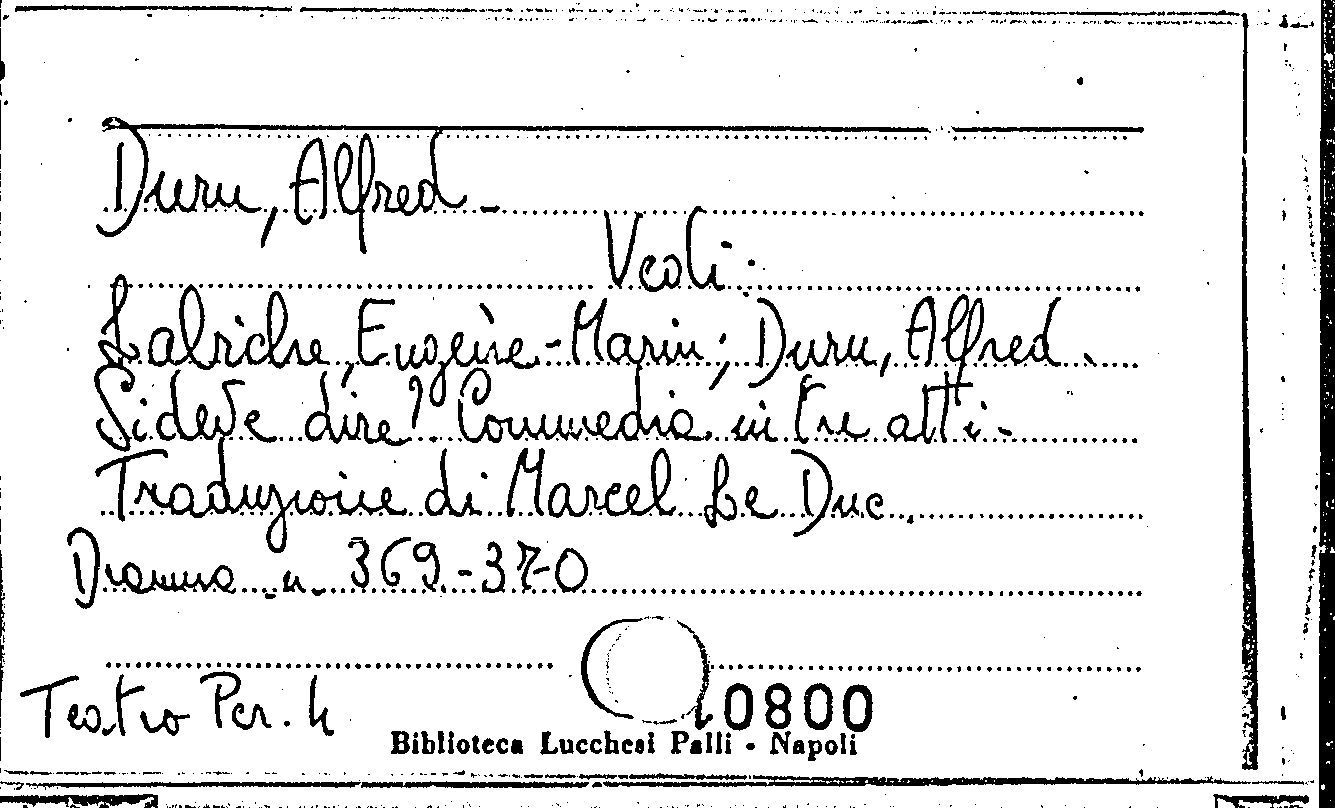 Duru, Alfred -
Vedi:
Labiche, Eugène-Marin; Duru, Alfred.
Si deve dire? Commedia in tre atti.
Traduzione di Marcel Le Duc.
Dramma n. 369-370
Teatro Per. 4
0800
Biblioteca Lucchesi Palli - Napoli